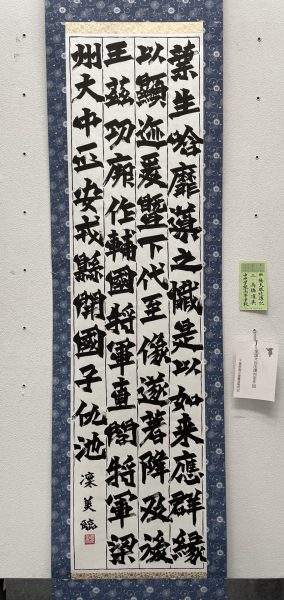 葉生唅靡導之懺是以如来應群緣
以顯迹爰暨下代至像遂著降及後
王茲功厥作輔國將軍直閤將軍梁
州大中正安戎縣開國子仇池
凜美臨
楊大眼造像記